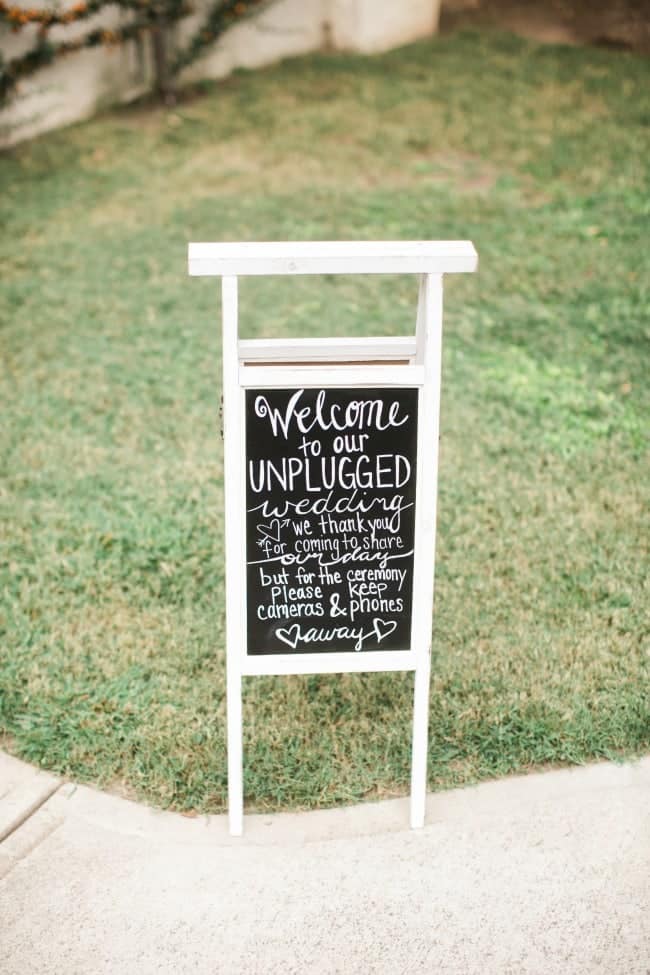 Welcome
to our
UNPLUGGED
wedding
we thank you
for coming to share
our day
but for the ceremony
please keep
cameras & phones
away